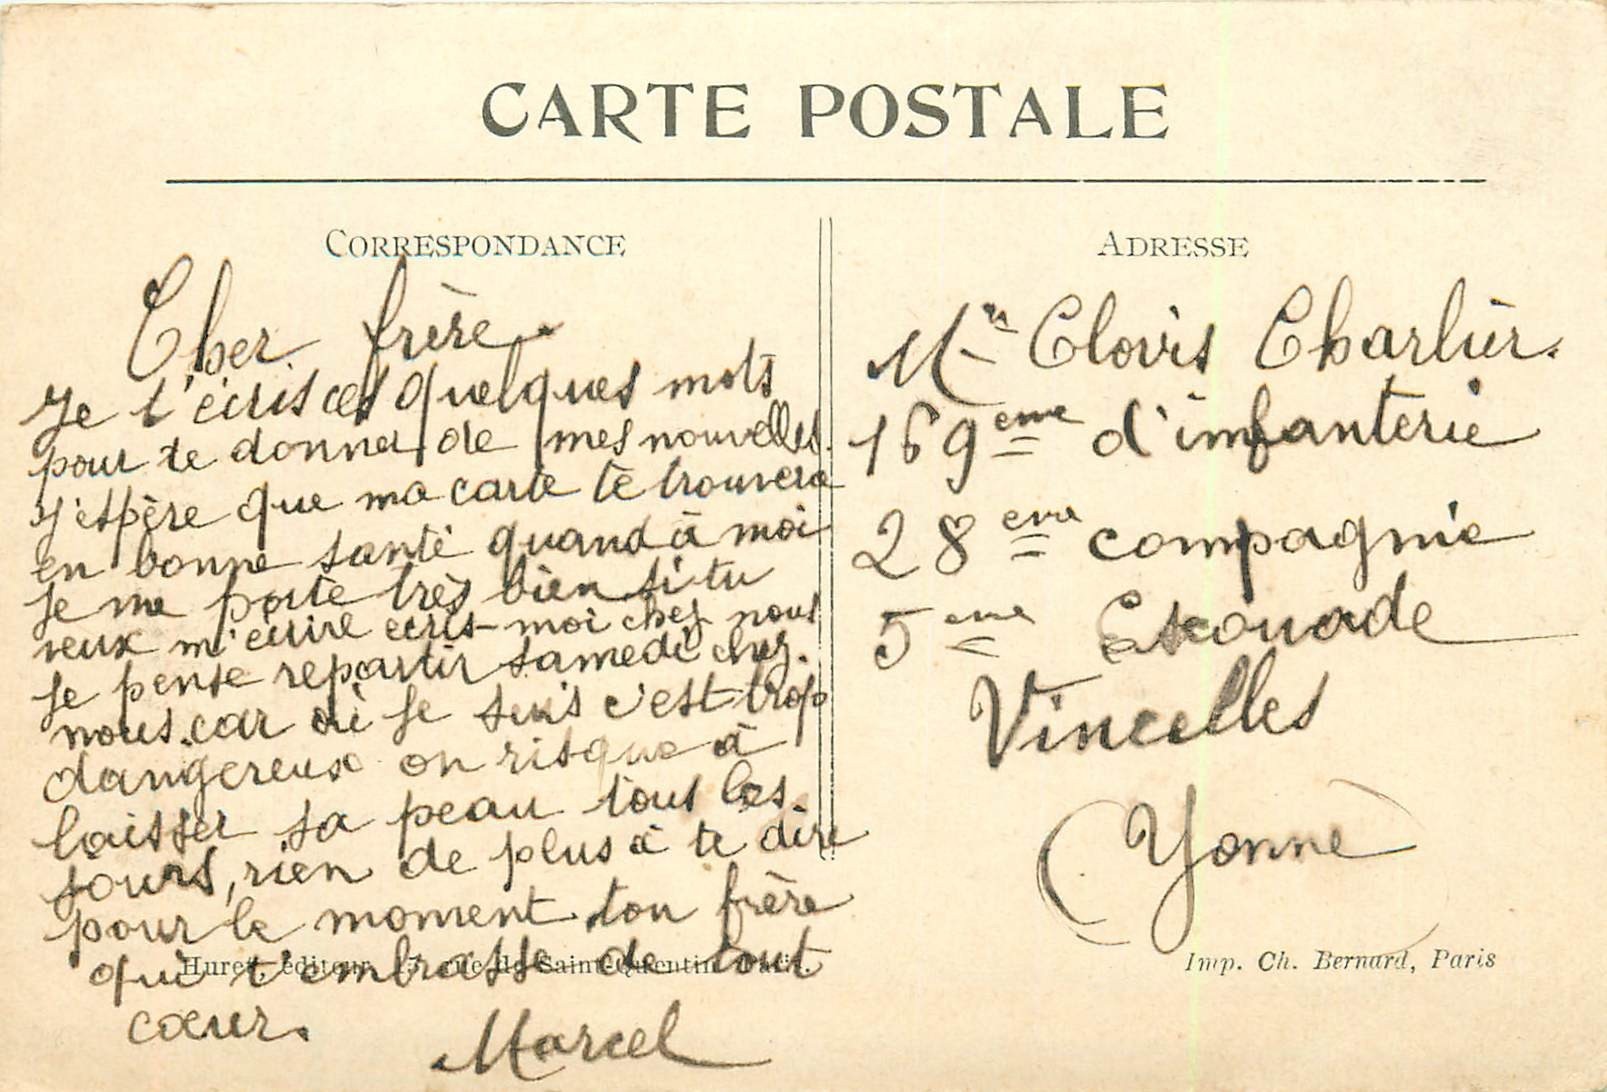 CARTE POSTALE
CORRESPONDANCE
Cher frère
Je t'écris ces quelques mots
pour te donner de mes nouvelles.
J'espère que ma carte te trouvera
en bonne santé quand à moi
je me porte très bien si tu
veux m'écrire ecris-moi chez nous
je pense repartir samedi chez.
nous. car où je suis c'est trop
dangereux on risque à
laisser sa peau tous les.
jours, rien de plus à te dire
pour le moment ton frère
qui t'embrasse de tout
cœur.
Marcel
Huret, éditeur, rue de Saint-Quentin
ADRESSE
Mr Clovis Charlier.
169eme d'infanterie
28eme compagnie
5eme Escouade
Vincelles
(Yonne)
Imp. Ch. Bernard, Paris